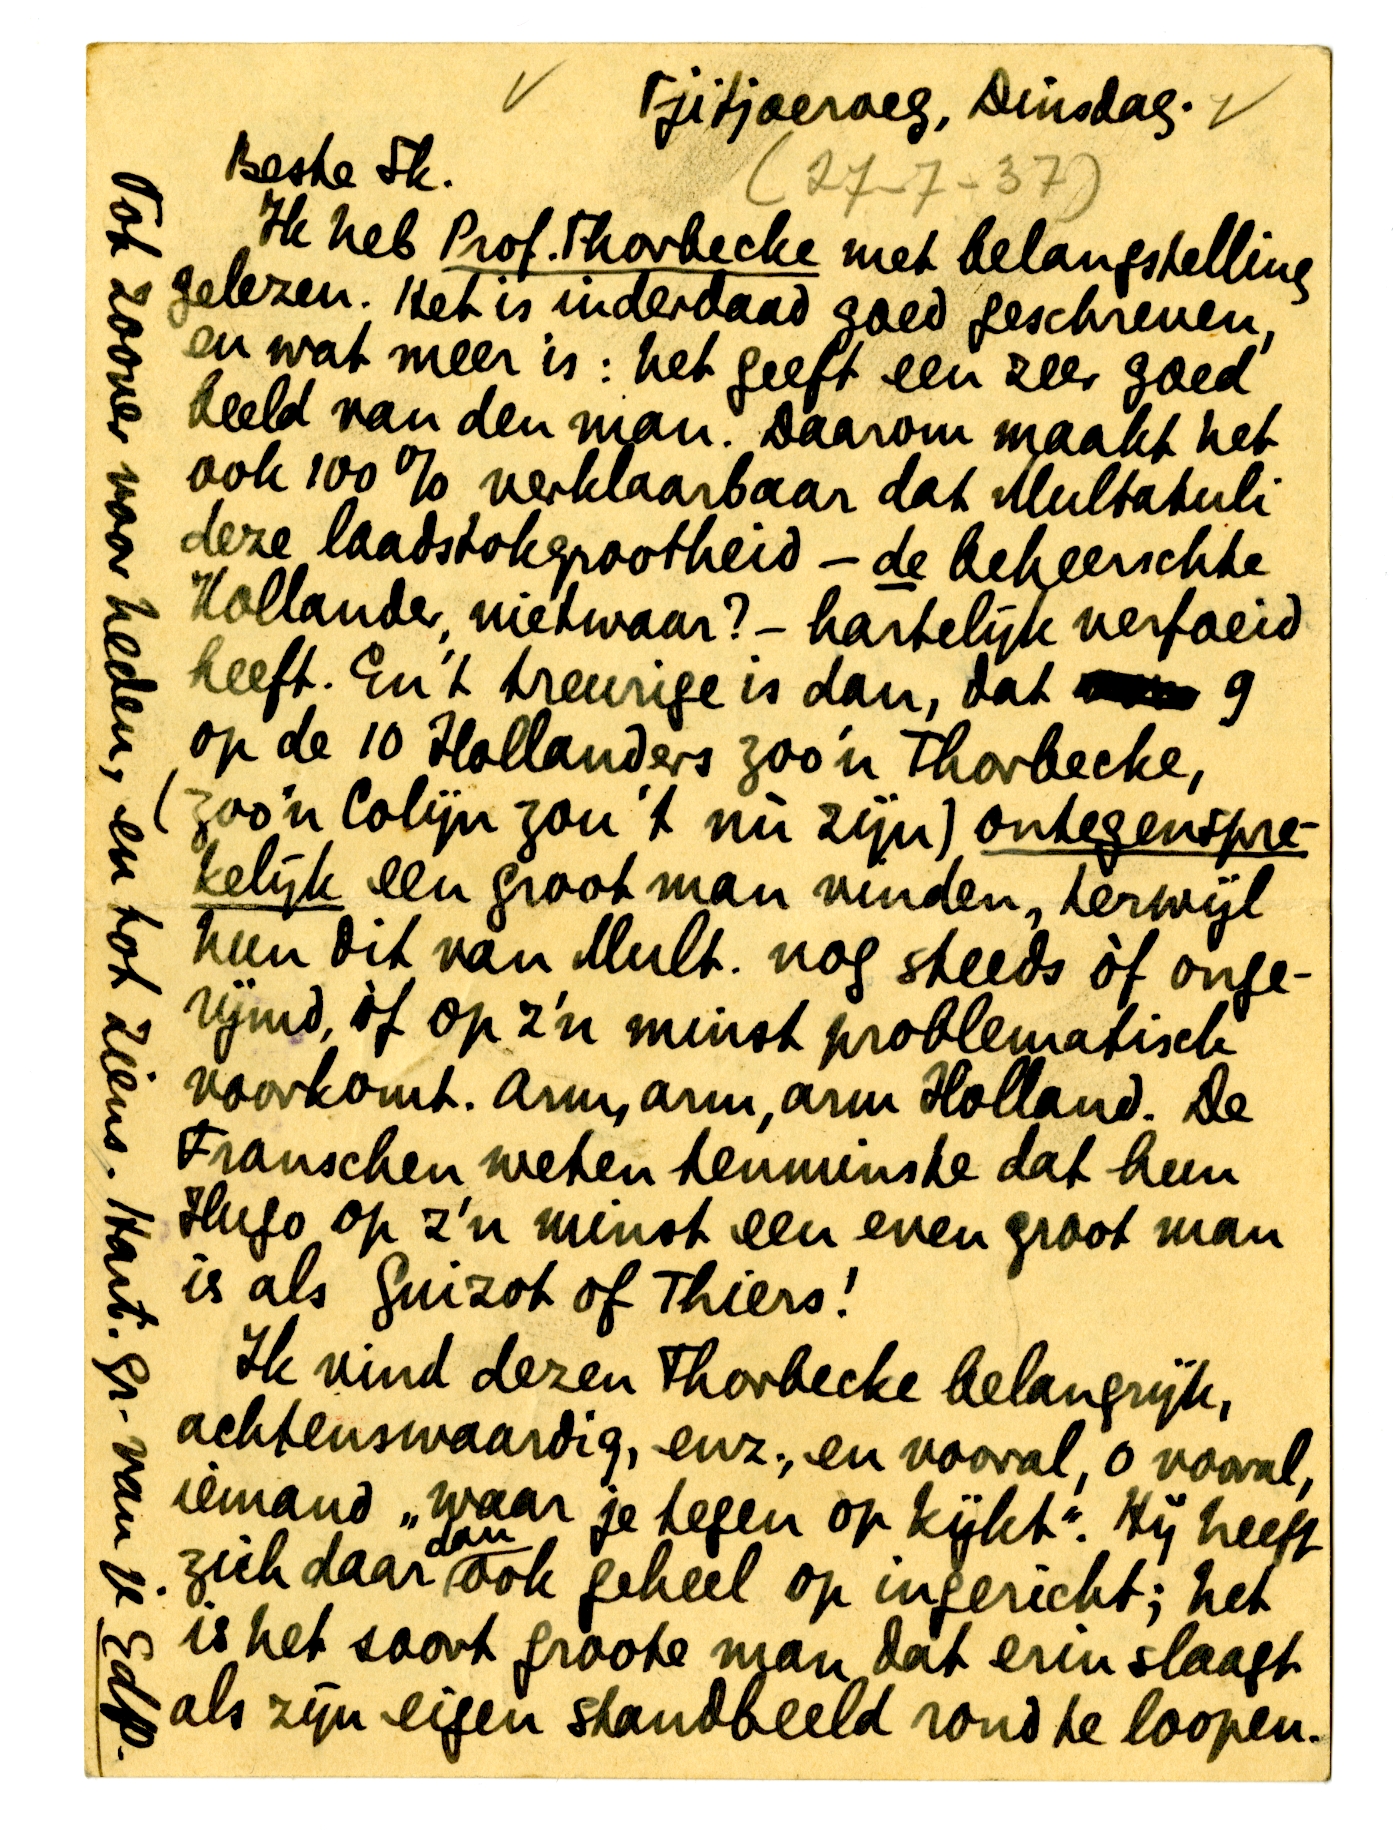 Tjitjoeroeg, Dinsdag.
(27-7-37)
Beste Fk.
Ik heb Prof. Thorbecke met belangstelling
gelezen. Het is inderdaad goed geschreven,
en wat meer is: het geeft een zeer goed
beeld van den man. Daarom maakt het
ook 100% verklaarbaar dat Multatuli
deze laadstokgrootheid – de beheerschte
Hollander, nietwaar? – hartelijk verfoeid
heeft. En 't treurige is dan, dat 9
op de 10 Hollanders zoo'n Thorbecke,
(zoo'n Colijn zou 't nù zijn) ontegenspre-
kelijk een groot man vinden, terwijl
hun dit van Mult. nog steeds òf onge-
rijmd, òf op z'n minst problematisch
voorkomt. Arm, arm, arm Holland. De
Franschen weten tenminste dat hun
Hugo op z'n minst een even groot man
is als Guizot of Thiers!
Ik vind dezen Thorbecke belangrijk,
achtenswaardig, enz., en vooral, o vooral,
iemand „waar je tegen op kijkt". Hij heeft
zich daar dan ook geheel op ingericht; het
is het soort groote man dat erin slaagt
als zijn eigen standbeeld rond te loopen.
Tot zoover voor heden, en tot ziens. Hart. gr. van je EdP.